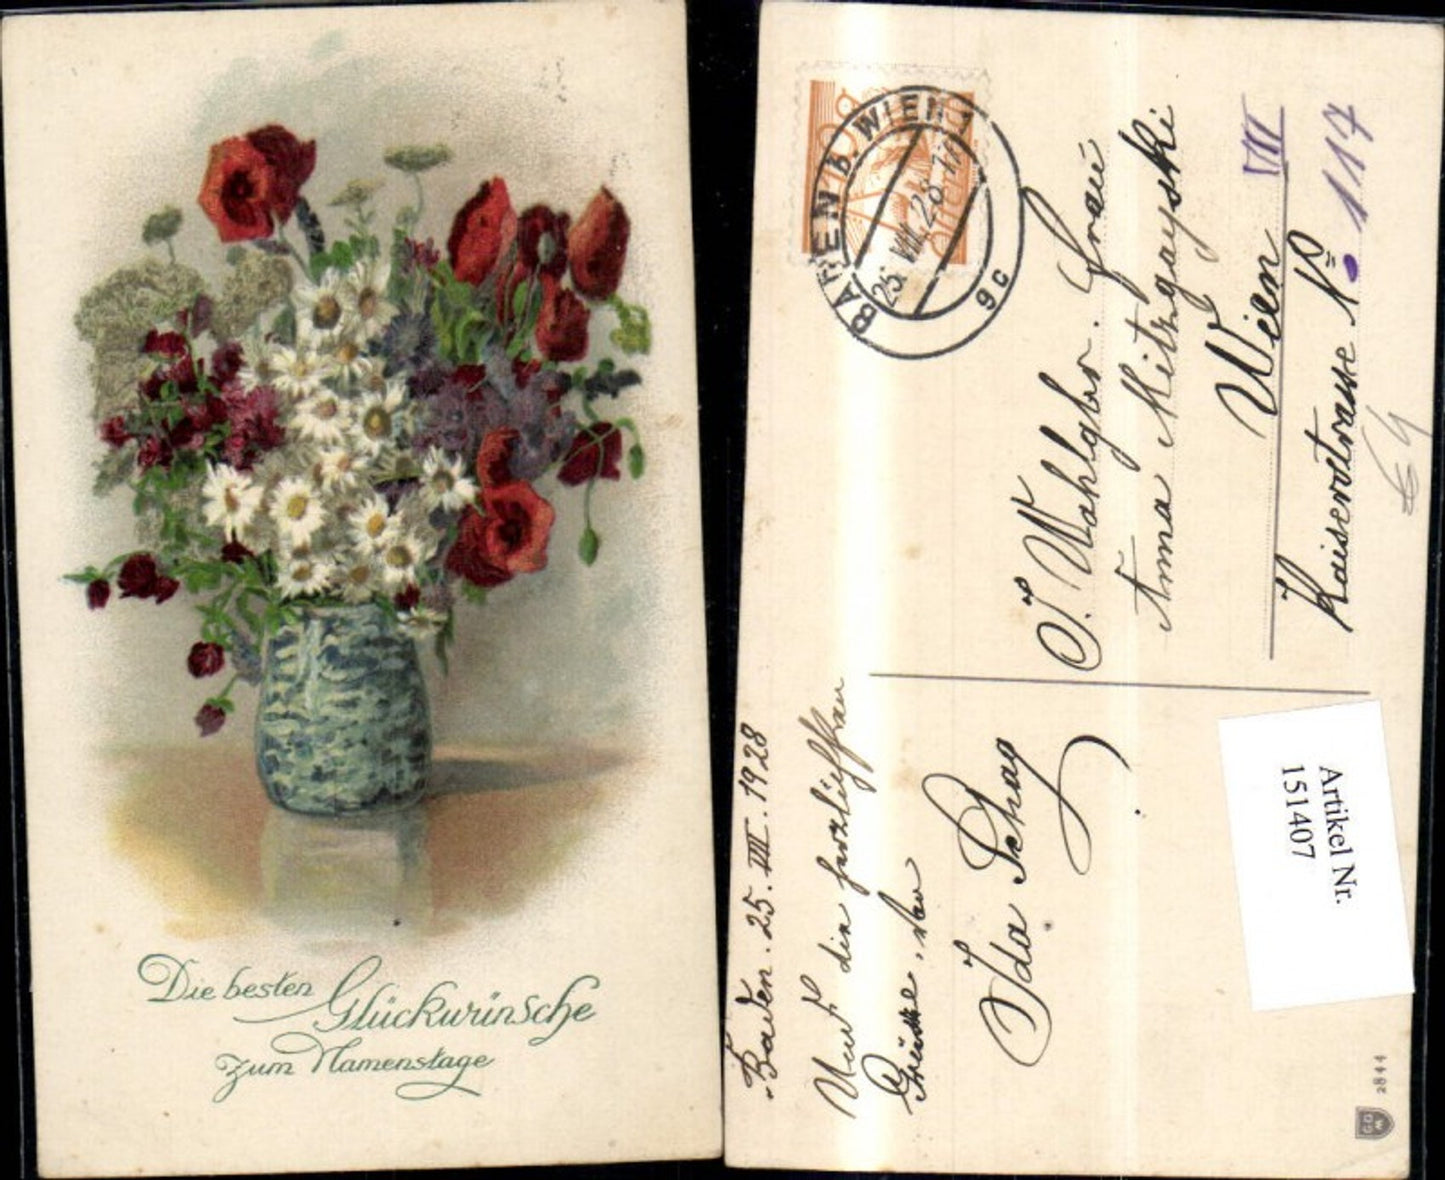 Die besten Glückwünsche
zum Namenstage
BADEN b. WIEN
25. VIII. 28
9c
Wohlgbor. Frau
Anna Mitzgayski
Wien
VIII
Kaiserstrasse No 117
64
Baden. 25. VIII. 1928
Und die herzlichsten
Grüsse, von
Ida Schag
Artikel Nr.
151407
2844